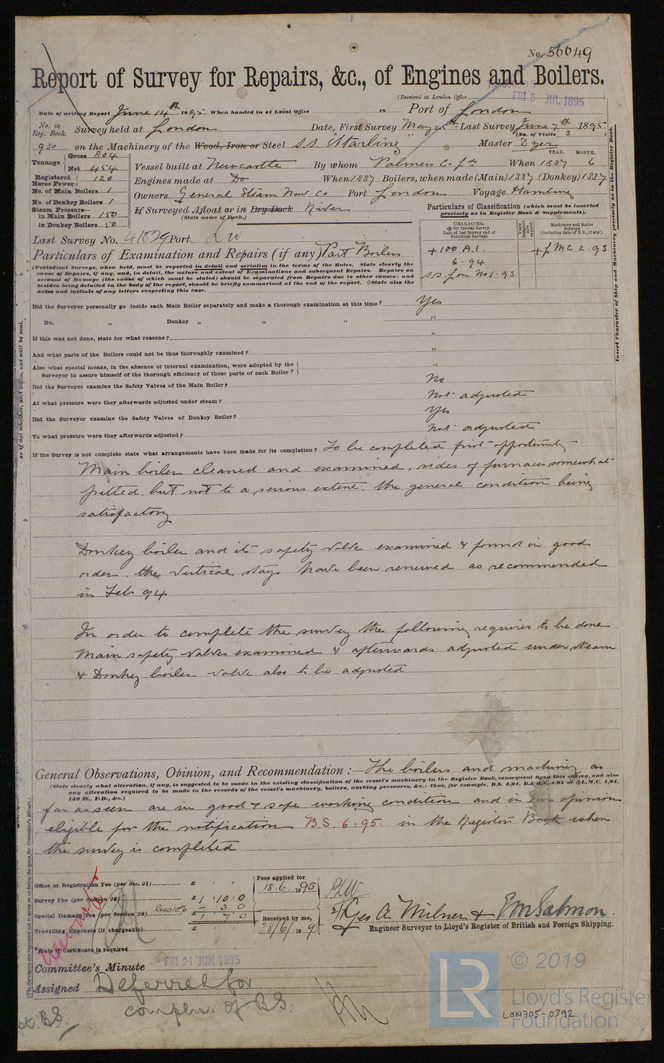 No. 56649
Report of Survey for Repairs, &c., of Engines and Boilers.
(Received at London Office
FRI 5 JUL 1895
Date of writing Report June 14th 1895 When handed in at Local Office 18 Port of London
No. in Reg. Book. Survey held at London Date, First Survey May 25 Last Survey June 7th 1895
(No. of Visits 3
920 on the Machinery of the Wood, Iron or Steel SS Starling Master Dyer
Tonnage Gross 804 Net 454
Vessel built at Newcastle By whom Palmers Co. Ld When 1887 6
YEAR. MONTH.
Registered Horse Power 120
Engines made at Do When 1887 Boilers, when made (Main) 1887 (Donkey) 1887
No. of Main Boilers 1
Owners General Steam Nav Co Port London Voyage Hamburg
No. of Donkey Boilers 1
Steam Pressure in Main Boilers 150
in Donkey Boilers 50
If Surveyed Afloat or in Dry Dock River
(State name of Dock.)
Particulars of Classification (which must be inserted precisely as in Register Book & Supplements).
Last Survey No. 41829 Port
Particulars of Examination and Repairs (if any) Part Boilers
+100 A.1.
6-94
ss Lon No1-93
+LMC 2.93
(Periodical Surveys, when held, must be reported in detail and seriatim in the terms of the Rules. State clearly the cause of Repairs, if any, and, in detail, the nature and extent of Examinations and subsequent Repairs. Repairs on account of Damage (the cause of which must be stated) should be separated from Repairs due to other causes; and besides being detailed in the body of the report, should be briefly summarised at the end of the report. State also the dates and initials of any letters respecting this case.
Did the Surveyor personally go inside each Main Boiler separately and make a thorough examination at this time? Yes
Do. „ Donkey „ „ „ "
If this was not done, state for what reasons? "
And what parts of the Boilers could not be thus thoroughly examined? "
Also what special means, in the absence of internal examination, were adopted by the Surveyor to assure himself of the thorough efficiency of those parts of each Boiler? "
Did the Surveyor examine the Safety Valves of the Main Boiler? No
At what pressure were they afterwards adjusted under steam? Not adjusted
Did the Surveyor examine the Safety Valves of Donkey Boiler? Yes
To what pressure were they afterwards adjusted? Not adjusted
If the Survey is not complete state what arrangements have been made for its completion? To be completed first opportunity
Main boiler cleaned and examined, sides of furnaces somewhat
pitted but not to a serious extent, the general condition being
satisfactory
Donkey boiler and its safety valve examined & found in good
order, the vertical stays have been renewed as recommended
in Feb 94
In order to complete the survey the following requires to be done
Main safety valves examined & afterwards adjusted under steam
& Donkey boiler valve also to be adjusted
General Observations, Opinion, and Recommendation:— The boilers and machinery as
(State clearly what alteration, if any, is suggested to be made in the existing classification of the vessel's machinery in the Register Book, consequent upon this survey, and also any alteration required to be made in the records of the vessel's machinery, boilers, working pressures, &c.;
far as seen are in good & safe working condition and in our opinion
eligible for the notification B.S. 6.95. in the Register Book when
the survey is completed
Office or Registration Fee (per Sec. 27) £
Fees applied for 18.6.1895
Survey Fee (per Section 28) £ 1.10.0
less 10% 3.0
Special Damage Fee (per Section 28) £ 1.7.0
Received by me, 28/6/189
Travelling Expenses (if chargeable) £
Geo A. Milner & E M Salmon.
Engineer Surveyor to Lloyd's Register of British and Foreign Shipping.
State if Certificate is required
Committee's Minute FRI 21 JUN 1895
Assigned Deferred for
compln. of BS.
© 2019
LR
Lloyd's Register
Foundation
LON705-0392